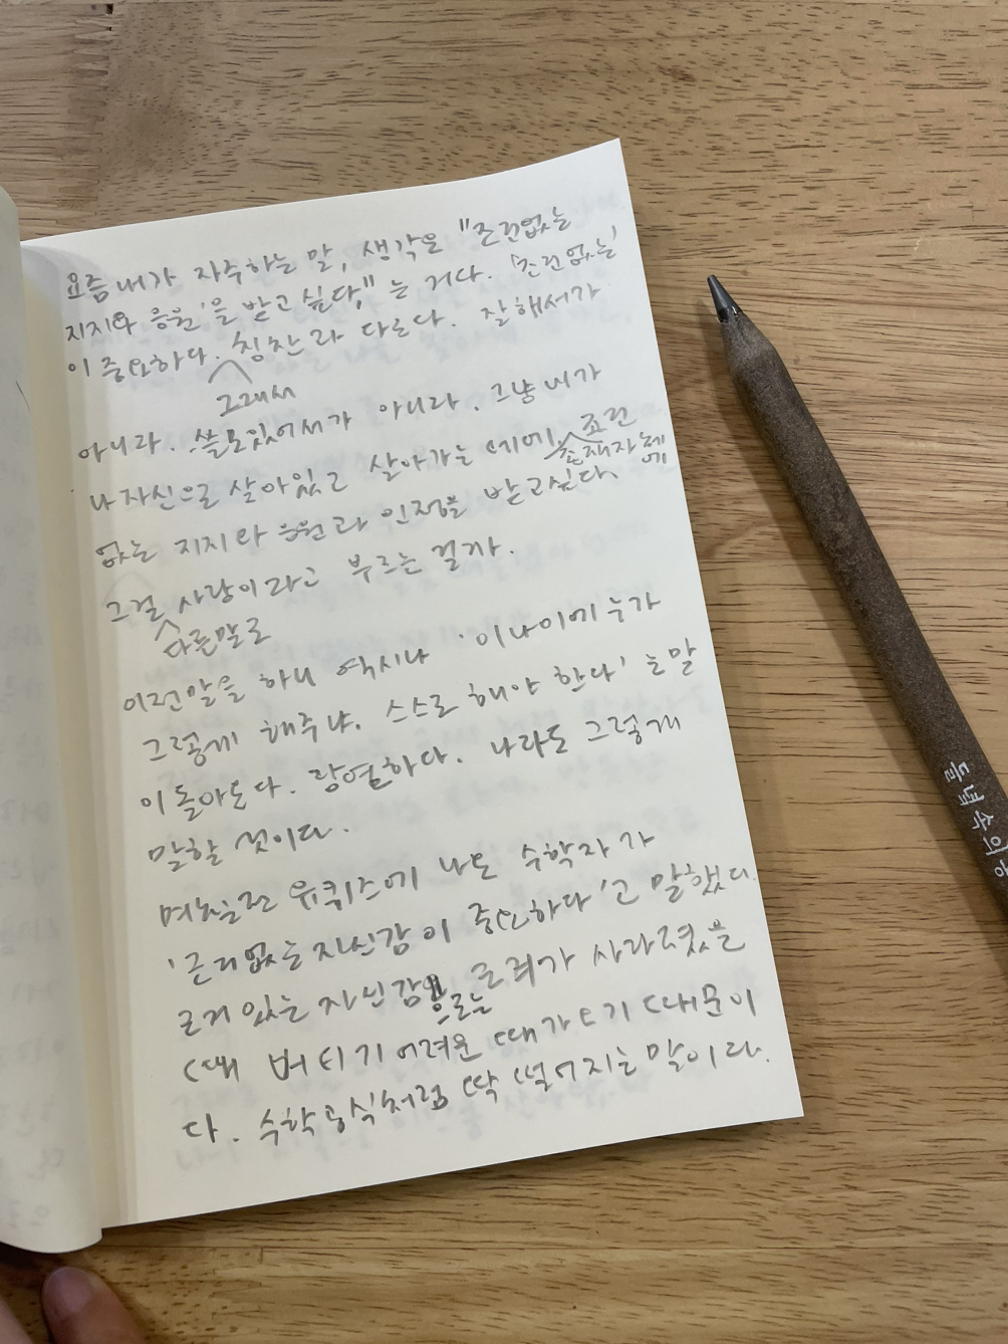 요즘 내가 자주하는 말, 생각은 "조건없는
지지와 응원을 받고 싶다."는 거다. '조건없는'
이 중요하다. 칭찬과 다르다. 잘해서가
그래서
아니라. 쓸모있어서가 아니라. 그냥 내가
나 자신으로 살아있고 살아가는 데에 조건
존재자체에
없는 지지와 응원과 인정을 받고싶다.
그걸 사랑이라고 부르는 걸까.
다른말로
이런말을 하니 역시나 '이나이에 누가
그렇게 해주냐. 스스로 해야 한다'는 말
이 돌아온다. 당연하다. 나라도 그렇게
말할 것이다.
며칠전 유퀴즈에 나온 수학자가
'근거없는 자신감이 중요하다'고 말했다.
근거 있는 자신감으로는 근거가 사라졌을
때 버티기 어려운 때가 오기 때문이
다. 수학공식처럼 딱 떨어지는 말이다.
들녘 속의